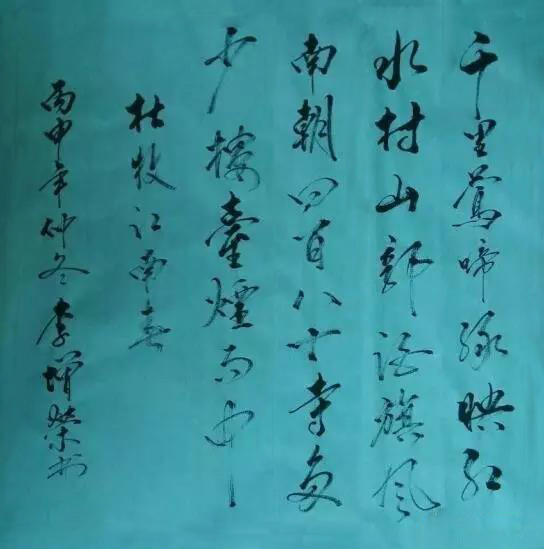 千里鶯啼緑映红
水村山郭酒旗風
南朝四百八十寺多
少樓臺煙雨中
杜牧江南春
丙申年仲冬李增榮书